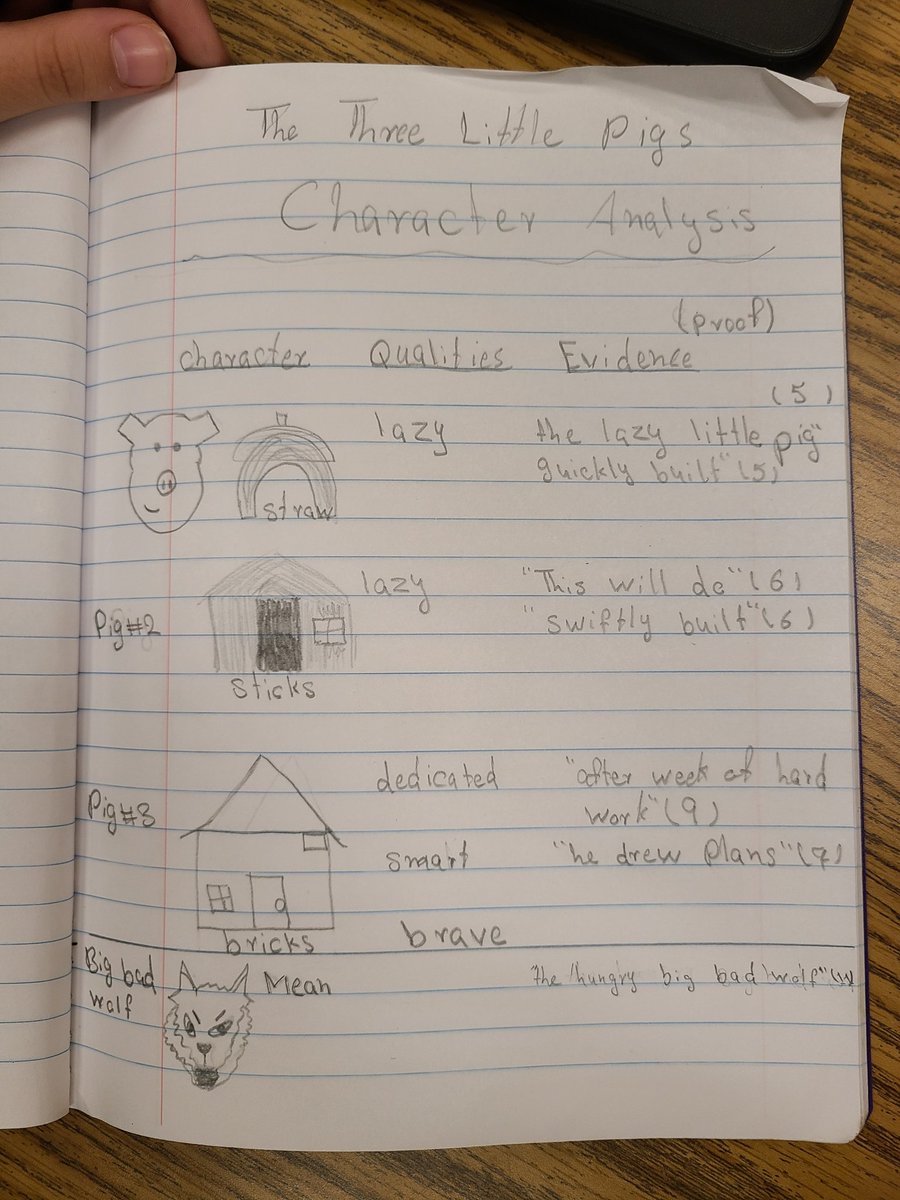 The Three Little Pigs
Character Analysis
(proof)
character Qualities Evidence
(5)
lazy the lazy little pig"
quickly built" (5)
straw
lazy "This will do" (6)
Pig#2 "swiftly built" (6)
sticks
dedicated "after week of hard
Pig#3 work" (9)
smart "he drew plans" (7)
bricks brave
Big bad Mean the hungry big bad wolf"
wolf